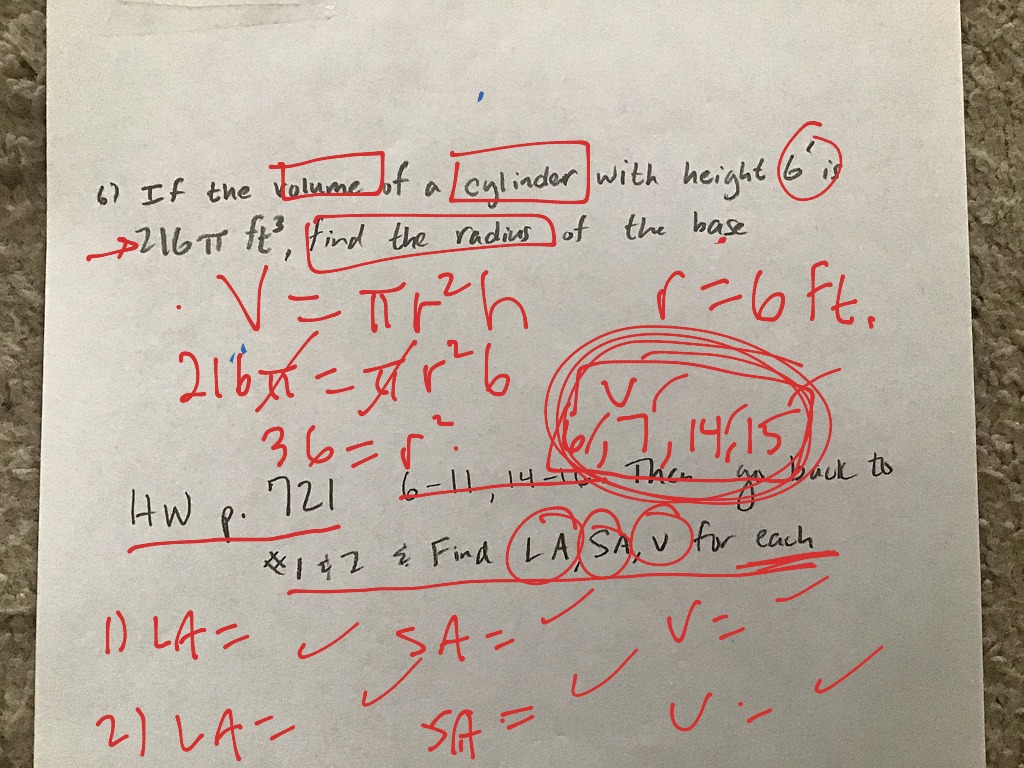 6) If the volume of a cylinder with height 6' is
→ 216π ft³, find the radius of the base
V = πr²h
r = 6 ft.
216π = πr²6
36 = r²
V
6, 7, 14, 15
HW p. 721 6-11, 14- Then go back to
*1 & 2 & Find LA, SA, V for each
1) LA = ✓ SA = ✓ V = ✓
2) LA = ✓ SA = ✓ V = ✓